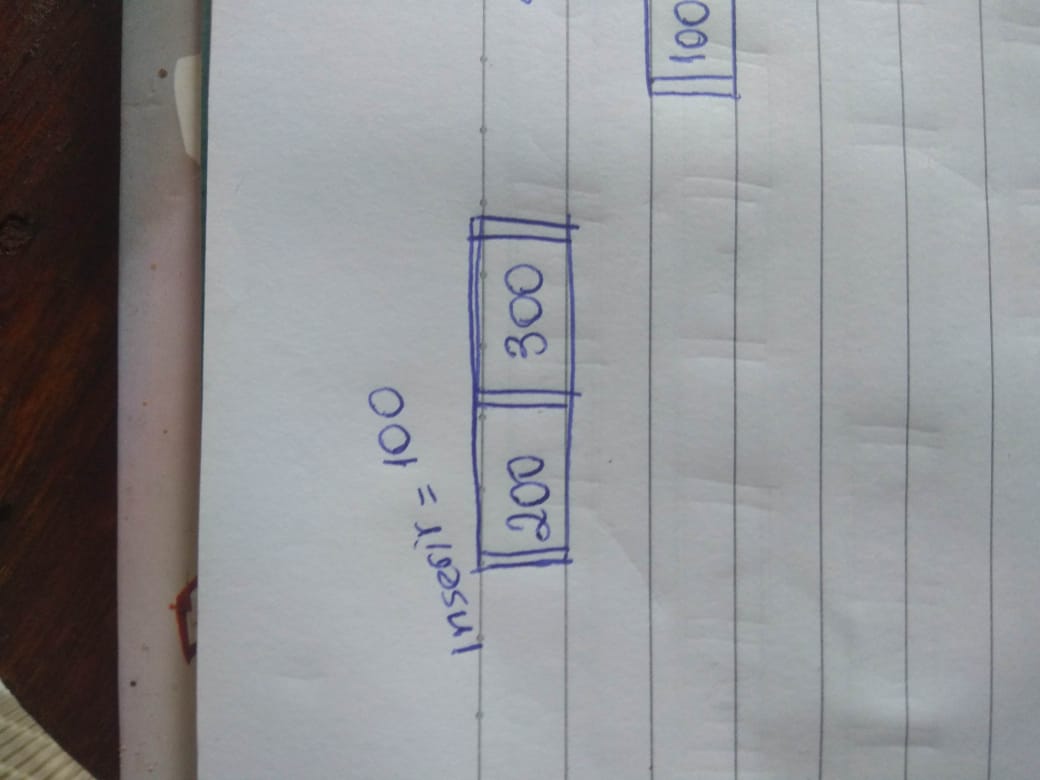 Inserir = 100
200 300
100